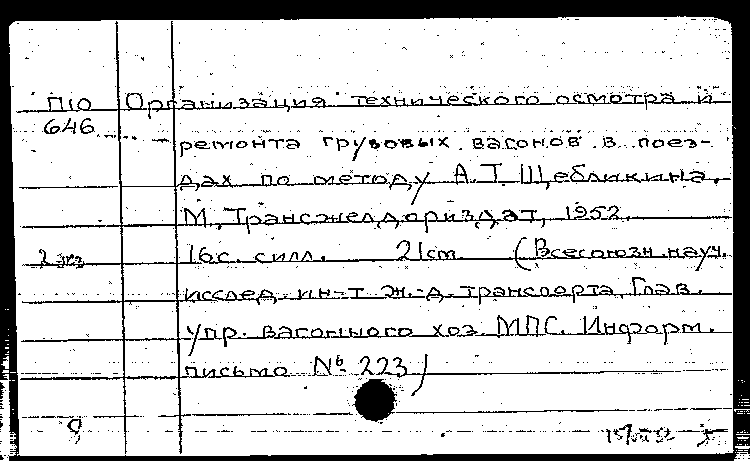 П10 Организация технического осмотра и
646 ремонта грузовых вагонов в поез-
дах по методу А.Т. Щебликина.
М., Трансжелдориздат, 1952.
2 экз 16 с. с илл. 21 cm. (Всесоюзн. науч.
исслед. ин-т ж.-д. транспорта. Глав.
упр. вагонного хоз. МПС. Информ.
письмо № 223)